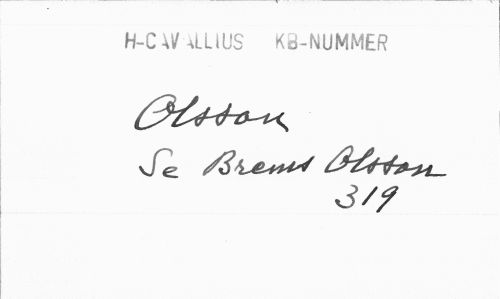 H-CAVALLIUS KB-NUMMER
Olsson
Se Brems Olsson
319